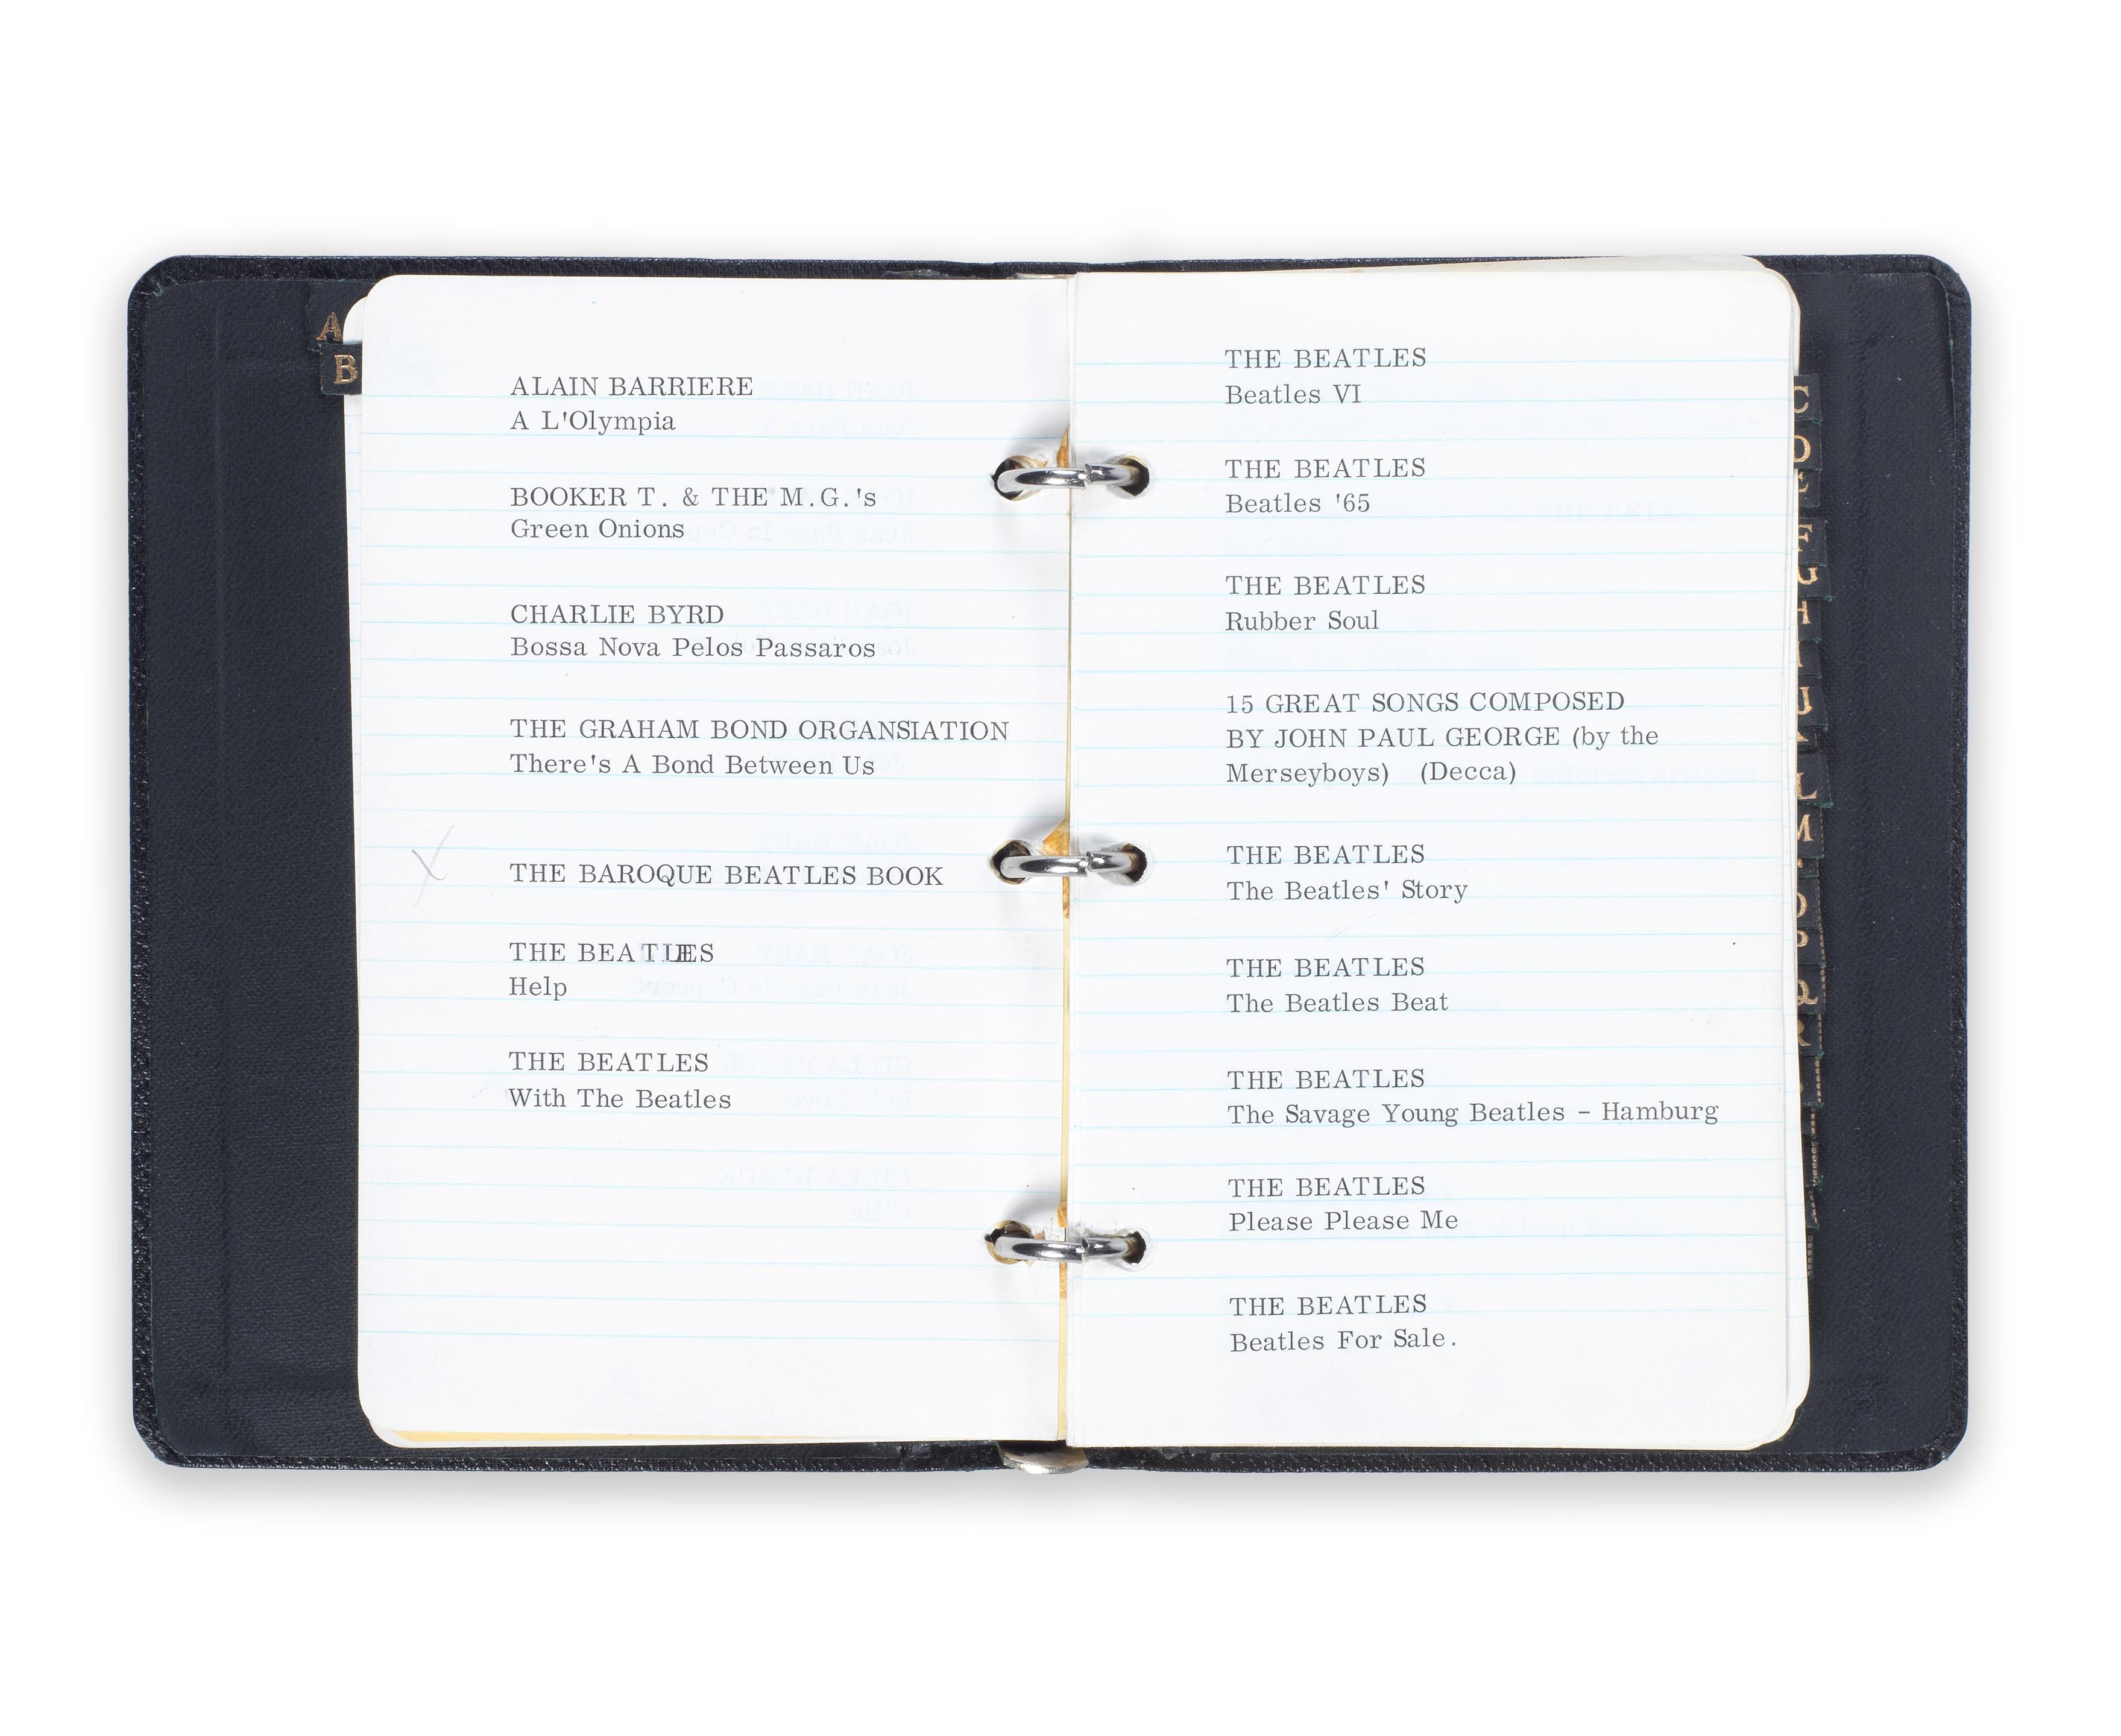 A
B
ALAIN BARRIERE
A L'Olympia
BOOKER T. & THE M.G.'s
Green Onions
CHARLIE BYRD
Bossa Nova Pelos Passaros
THE GRAHAM BOND ORGANSIATION
There's A Bond Between Us
THE BAROQUE BEATLES BOOK
THE BEATLES
Help
THE BEATLES
With The Beatles
THE BEATLES
Beatles VI
THE BEATLES
Beatles '65
THE BEATLES
Rubber Soul
15 GREAT SONGS COMPOSED
BY JOHN PAUL GEORGE (by the
Merseyboys) (Decca)
THE BEATLES
The Beatles' Story
THE BEATLES
The Beatles Beat
THE BEATLES
The Savage Young Beatles - Hamburg
THE BEATLES
Please Please Me
THE BEATLES
Beatles For Sale.
C
D
E
F
G
H
I
J
K
L
M
O
P
Q
R